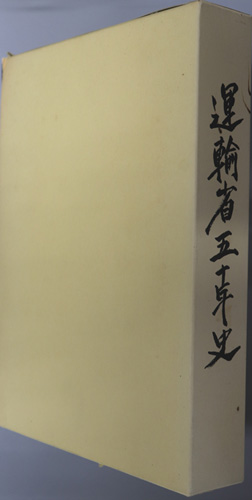 運輸省五十年史